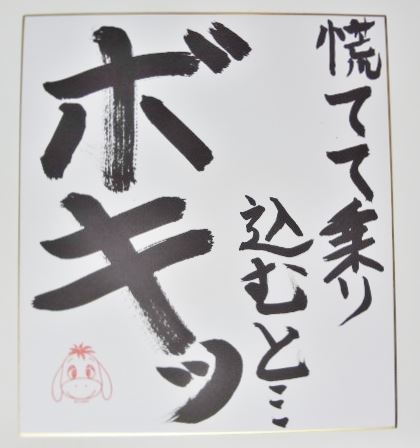 慌てて乗り
込むと…
ボキッ